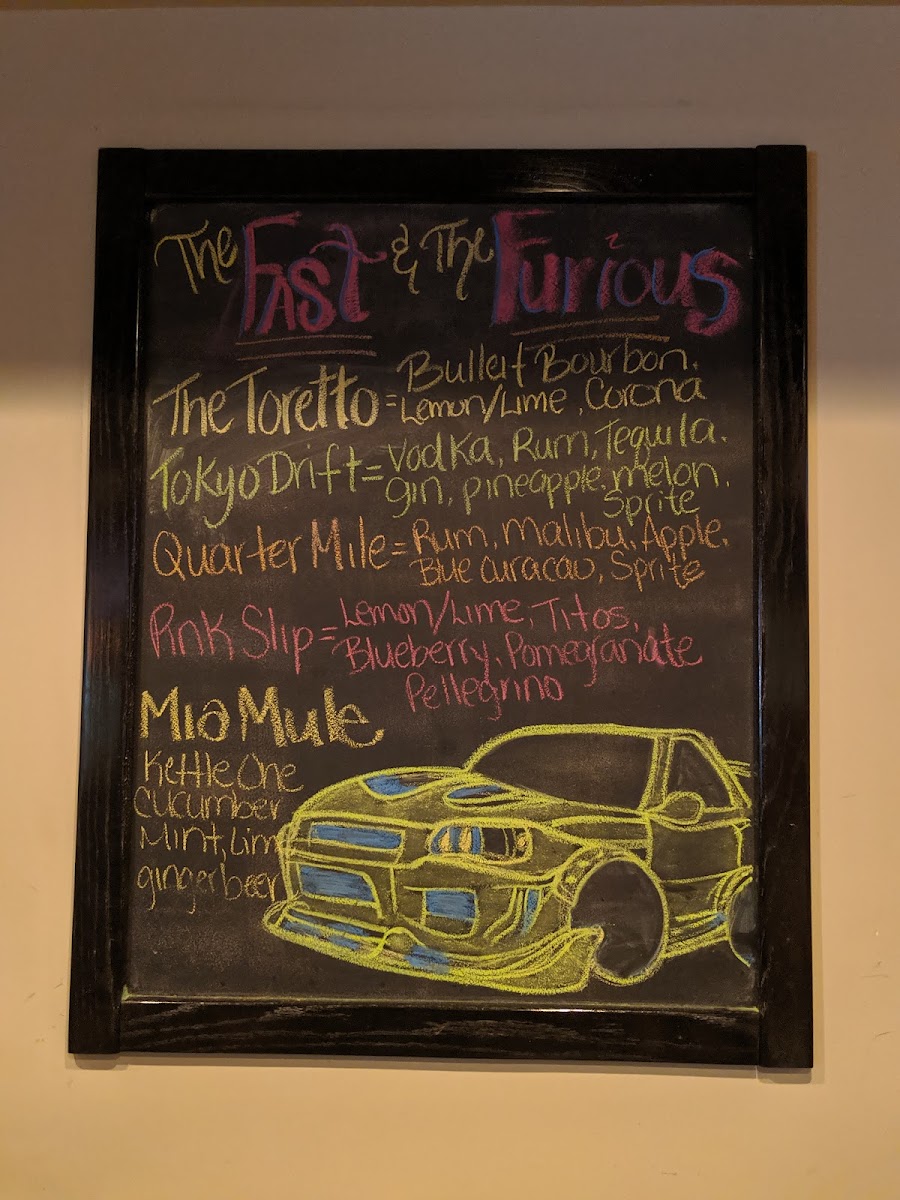 The Fast & The Furious
The Toretto = Bulleit Bourbon,
Lemon/Lime, Corona
Tokyo Drift = Vodka, Rum, Tequila.
gin, pineapple, melon,
Sprite
Quarter Mile = Rum, Malibu, Apple,
Blue Curacao, Sprite
Pink Slip = Lemon/Lime, Titos,
Blueberry, Pomegranate
Pellegrino
Mia Mule
Kettle One
Cucumber
Mint, Lime
ginger beer